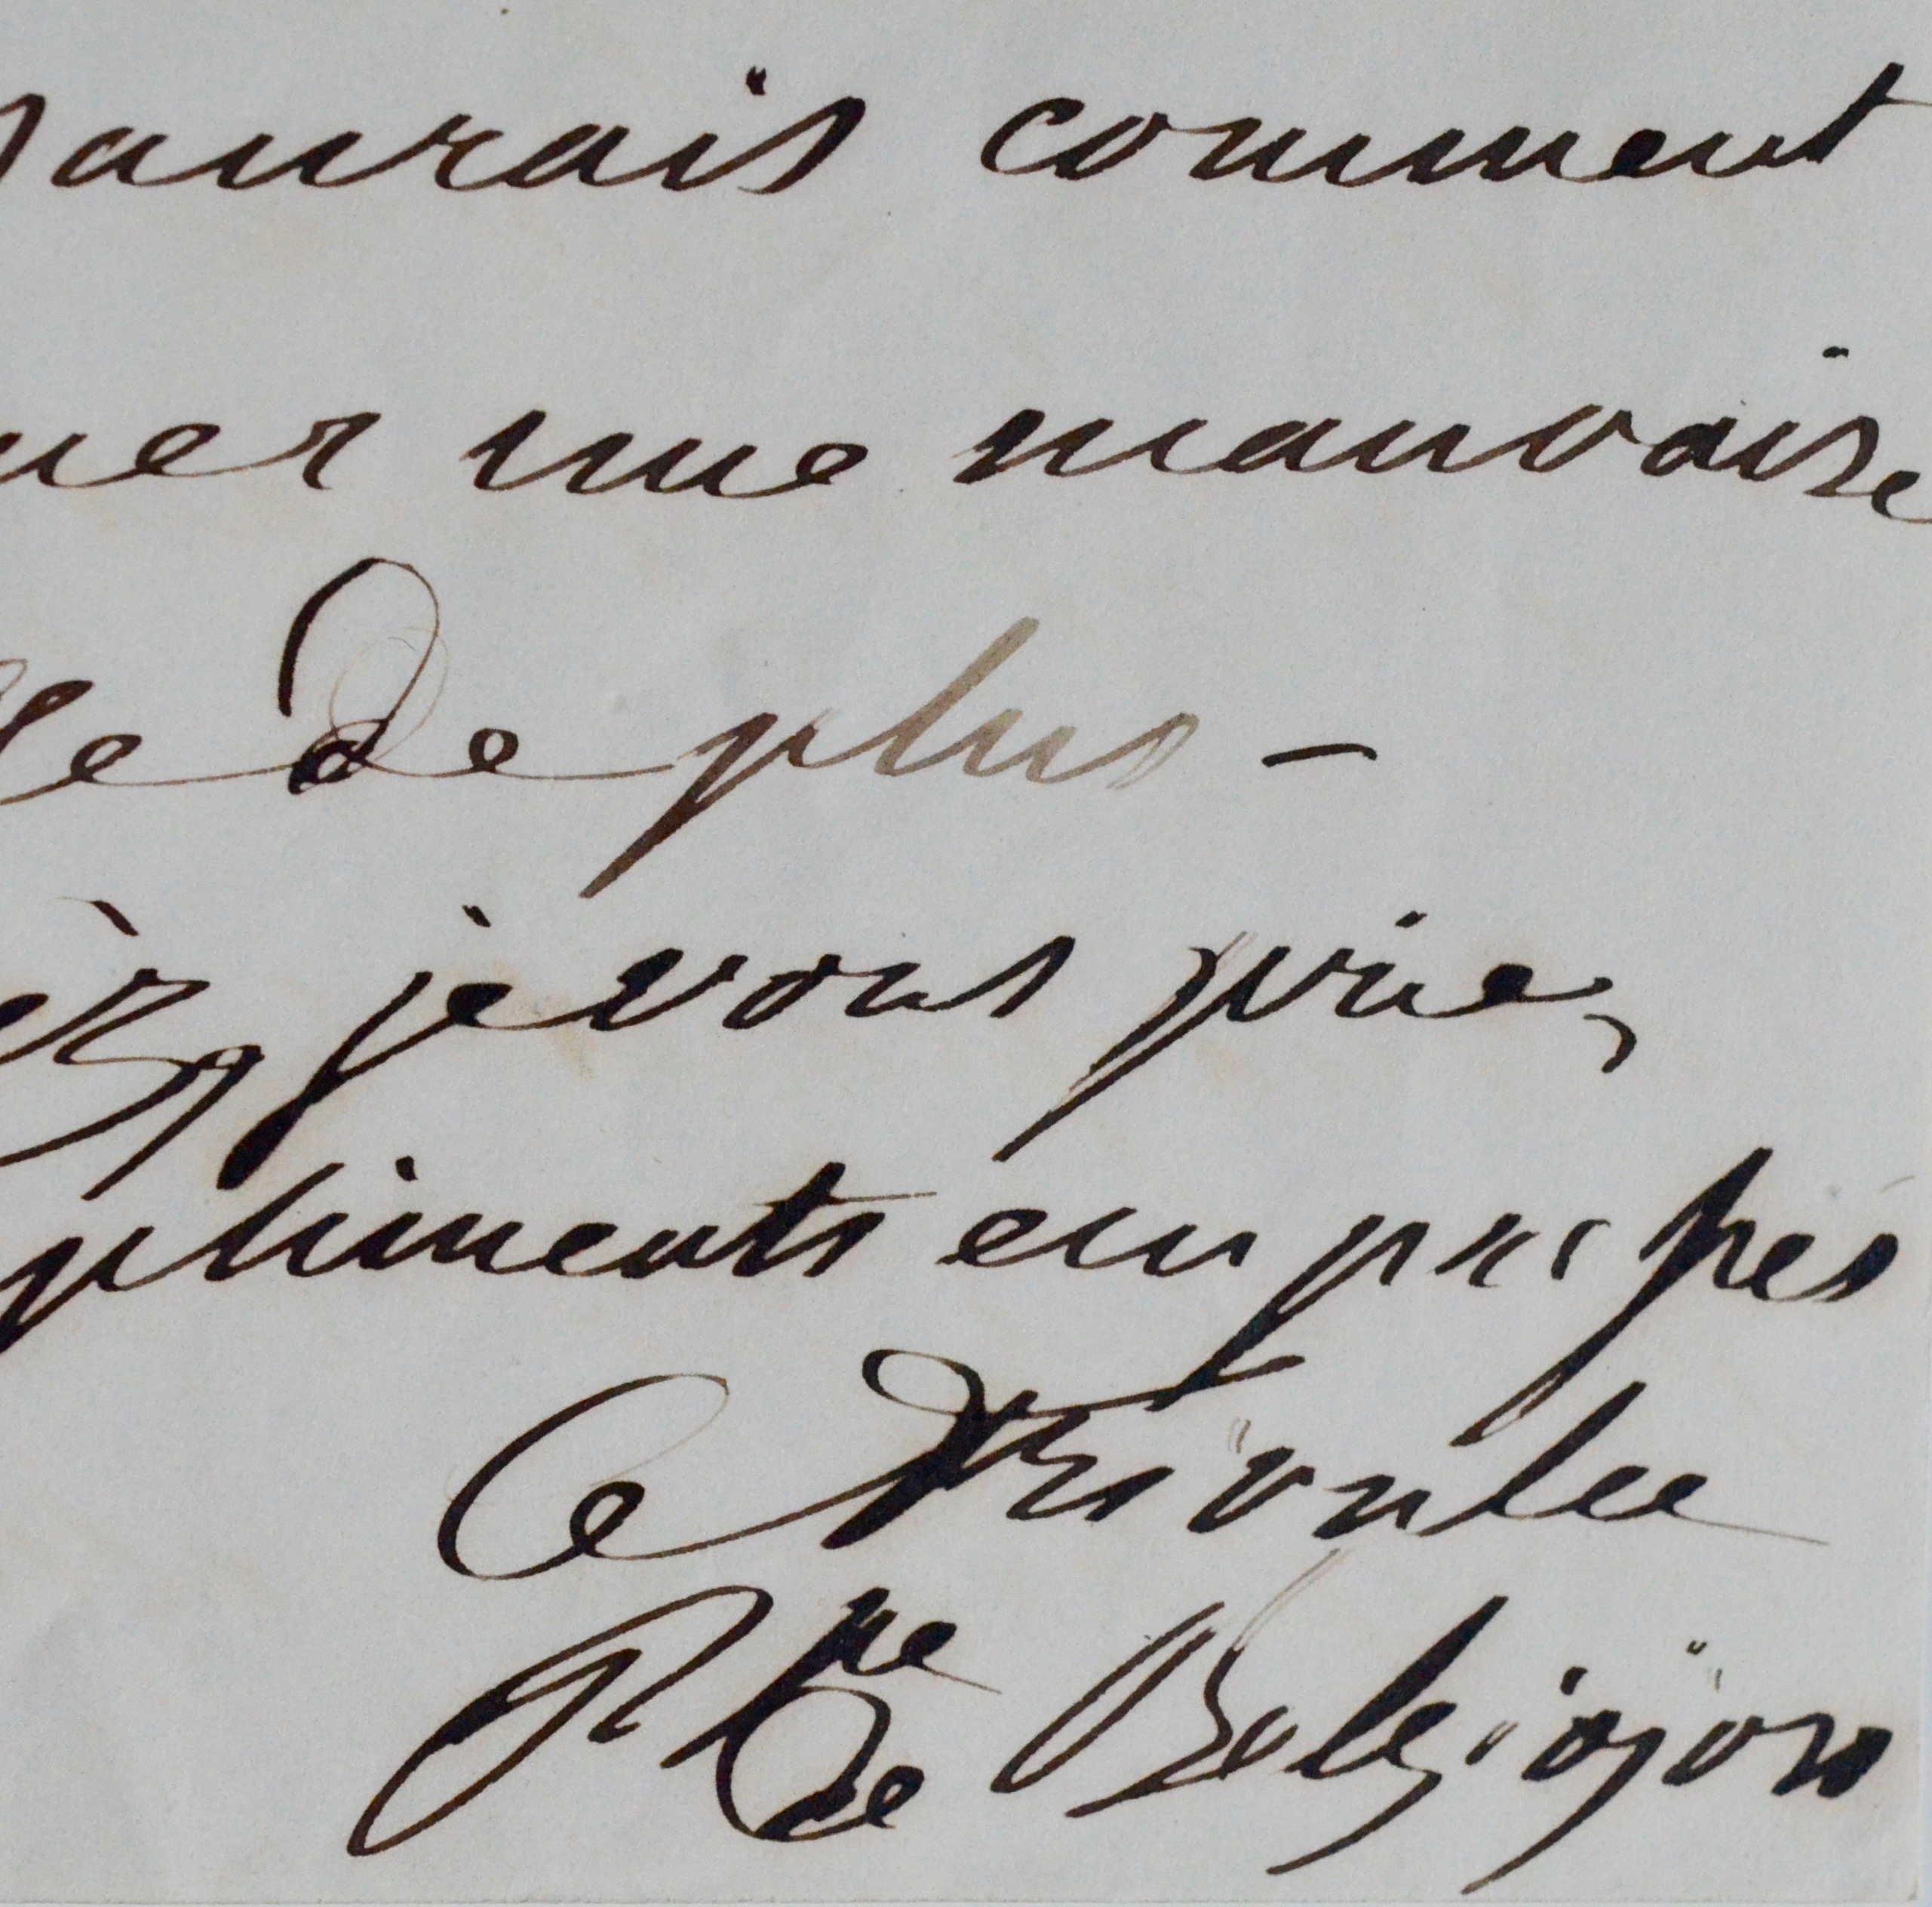 saurais comment
uer une mauvaise
le de plus –
ez, je vous prie,
pliments empressés
Ce Trivulce
Pcesse de Belgiojoso